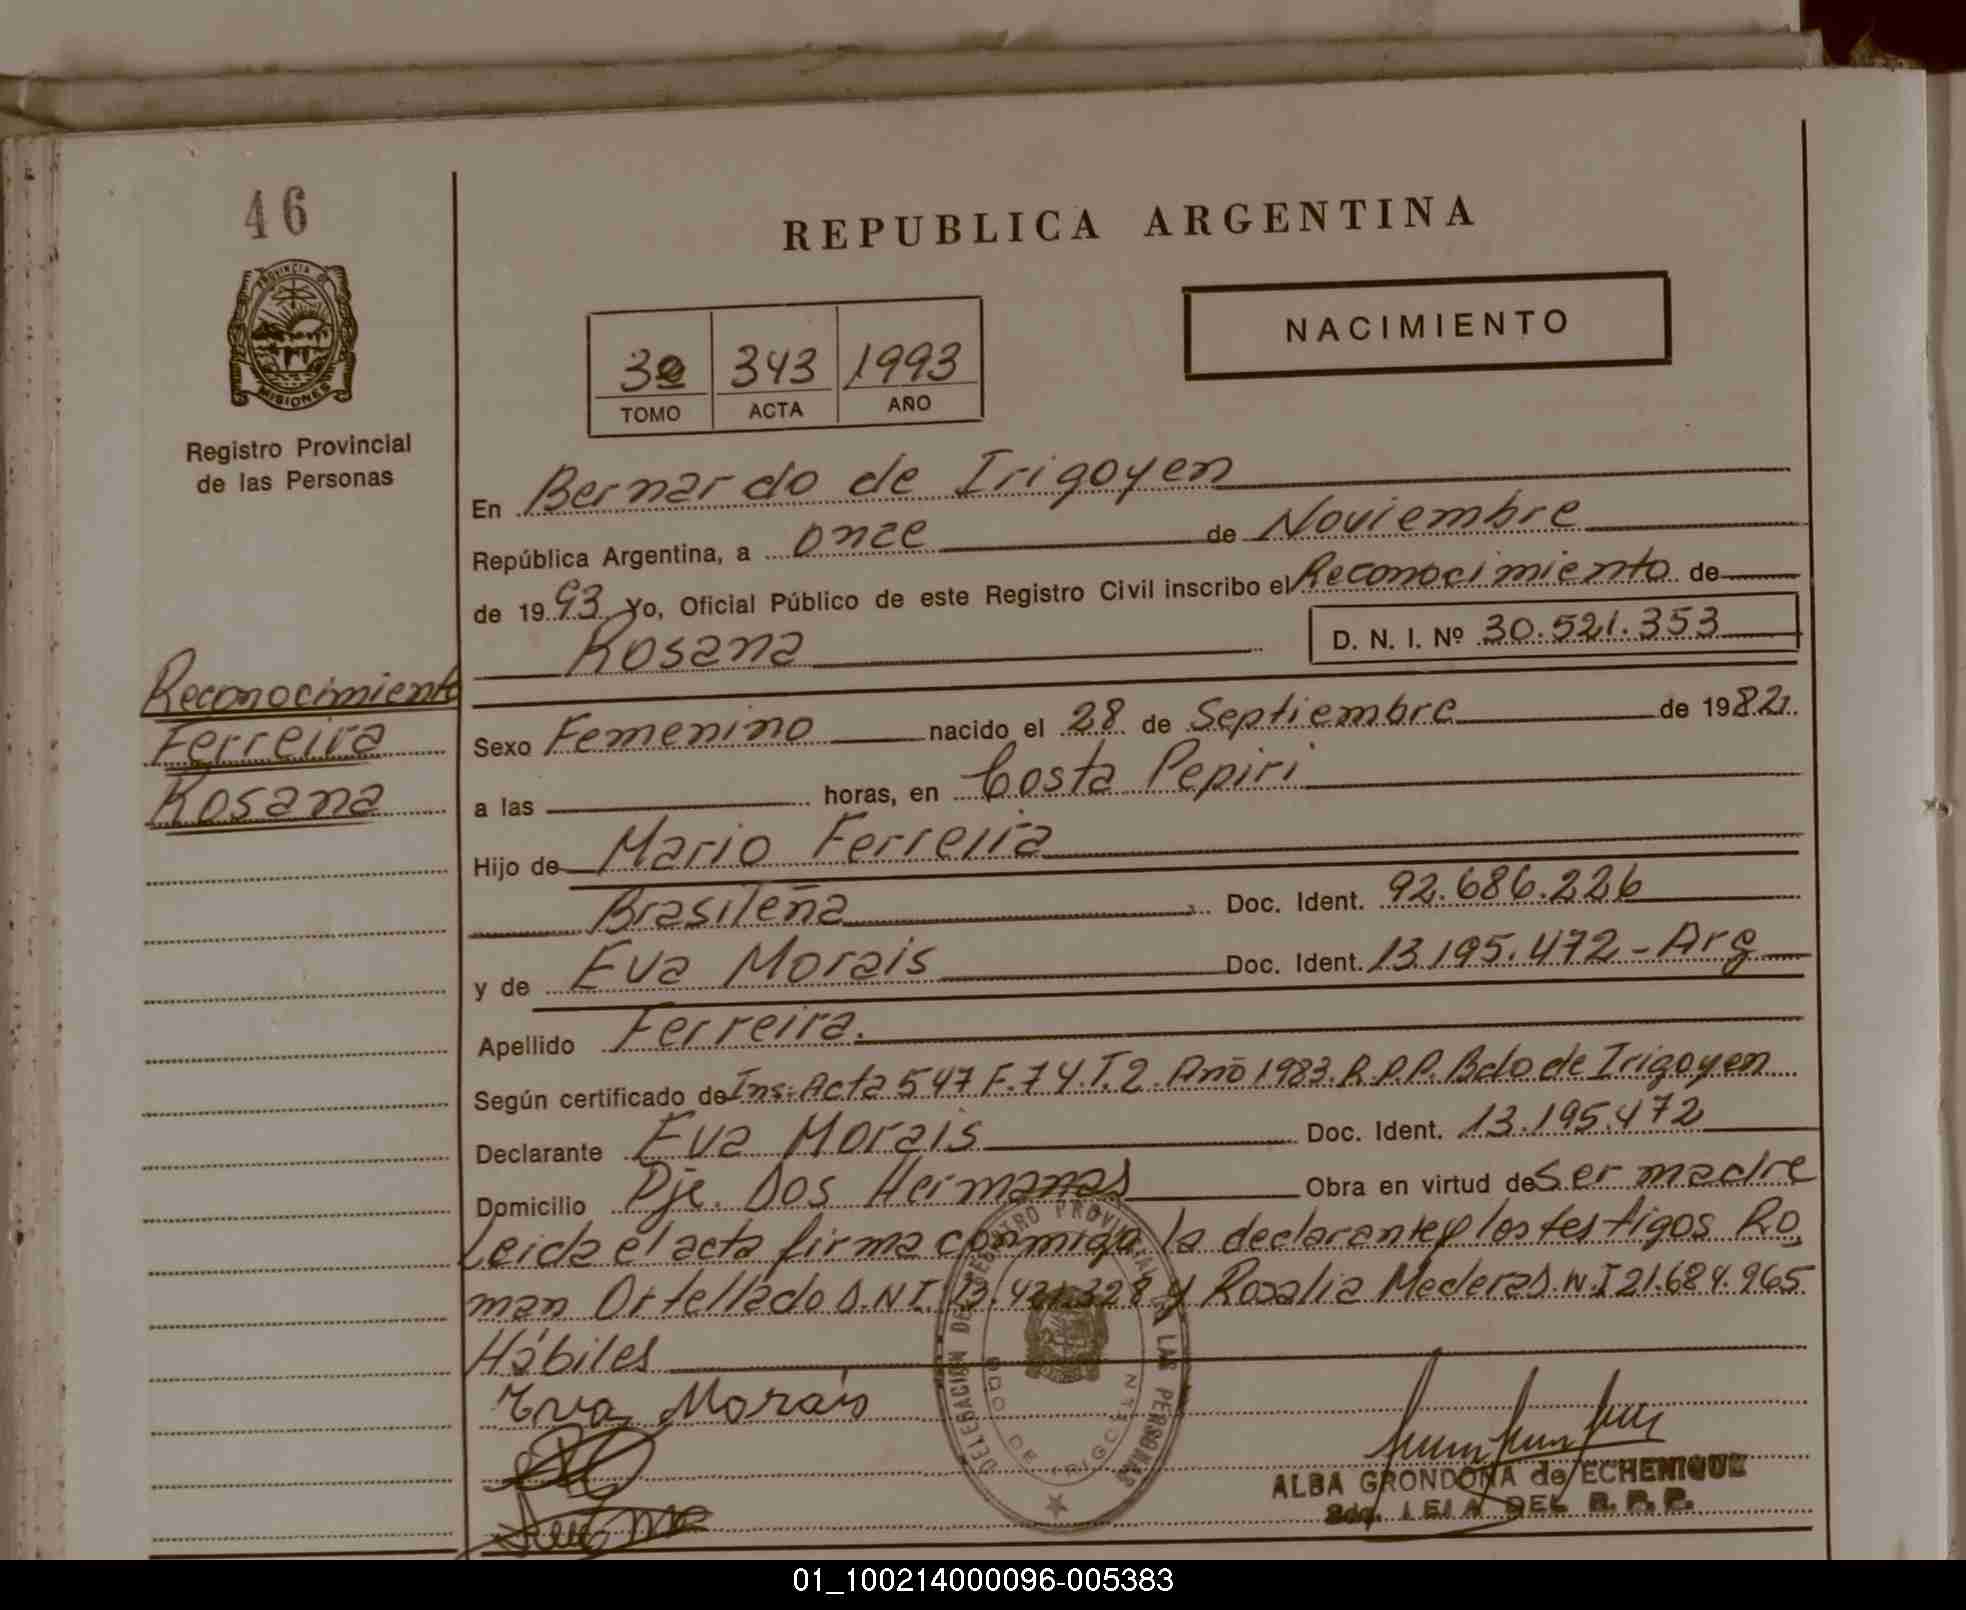 46
REPUBLICA ARGENTINA
PROVINCIA DE
MISIONES
NACIMIENTO
3º 343 1993
TOMO ACTA AÑO
Registro Provincial
de las Personas
En Bernardo de Irigoyen
República Argentina, a once de Noviembre
de 1993 Yo, Oficial Público de este Registro Civil inscribo el Reconocimiento de
Rosana D. N. I. Nº 30.521.353
Reconocimiento
Ferreira
Rosana
Sexo Femenino nacido el 28 de Septiembre de 1982
a las horas, en Costa Pepiri
Hijo de Mario Ferreira
Brasileña Doc. Ident. 92.686.226
y de Eva Morais Doc. Ident. 13.195.472 - Arg
Apellido Ferreira.
Según certificado de Ins: Acta 547 F. 74. T. 2. Año 1983. R.P.P. Bdo de Irigoyen
Declarante Eva Morais Doc. Ident. 13.195.472
Domicilio Pje. Dos Hermanas Obra en virtud de ser madre
Leida el acta firma conmigo la declarante y los testigos Ro
man Ortellado D.N.I. 13.421.328 y Rosalia Mederos D.N.I 21.684.965
Hábiles
Eva Morais
DELEGACIÓN DEL REGISTRO PROVINCIAL DE LAS PERSONAS
BDO DE IRIGOYEN
ALBA GRONDONA de ECHENIQUE
DEL R. P. P.
01_100214000096-005383